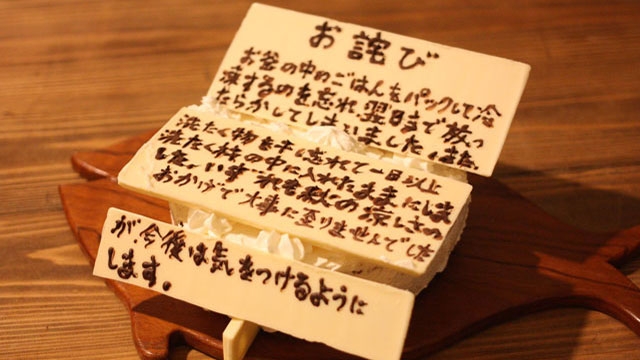 お詫び
お釜の中のごはんをパックして冷
凍するのを忘れ、翌日まで放っ
たらかしてしまいました。また、
洗たく物を干し忘れて一日以上
洗たく機の中に入れたままにしま
した。いずれも秋の涼しさの
おかげで大事に至りませんでした
が、今後は気をつけるように
します。